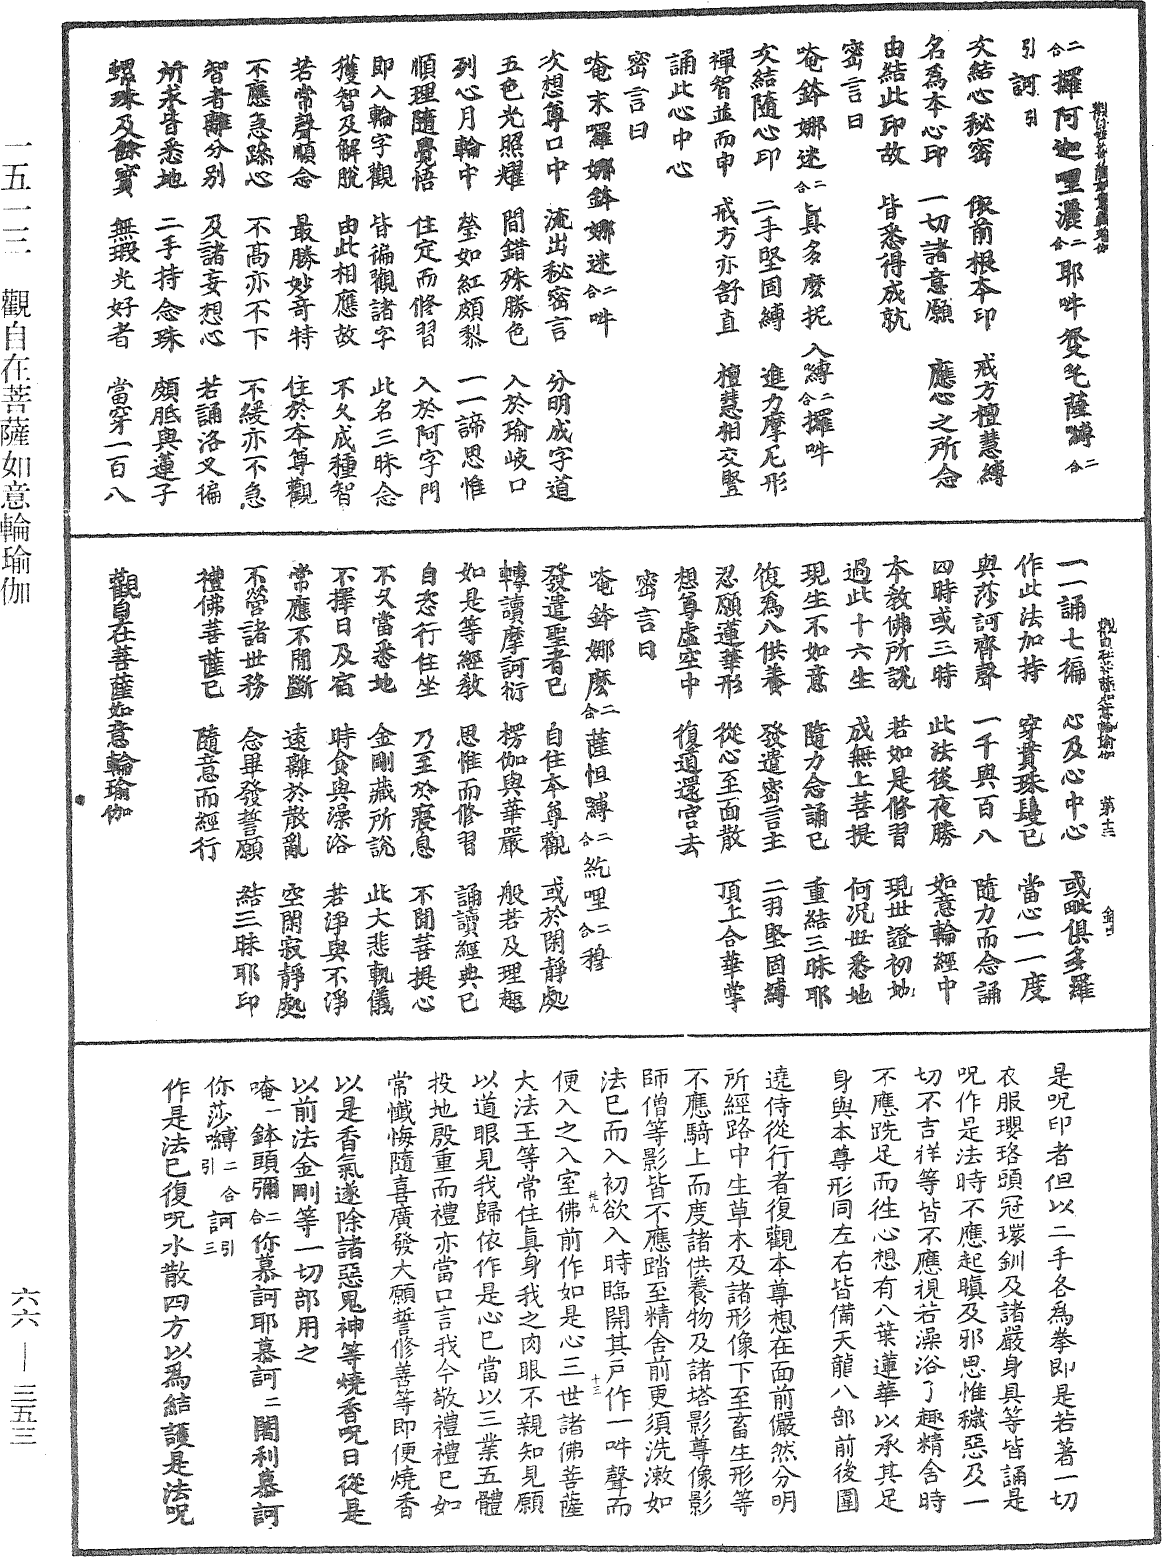 一五一三　觀自在菩薩如意輪瑜伽
六六—三五三
二合攞阿迦哩灑二合耶吽癹吒薩嚩二合
引訶引
次結心秘密　依前根本印　戒方檀慧縛
名為本心印　一切諸意願　應心之所念
由結此印故　皆悉得成就
密言曰
唵鉢娜迷二合真多麼抳入縛二合攞吽
次結隨心印　二手堅固縛　進力摩尼形
禪智並而申　戒方亦舒直　檀慧相交豎
誦此心中心
密言曰
唵末囉娜鉢娜迷二合吽
次想尊口中　流出秘密言　分明成字道
五色光照耀　間錯殊勝色　入於瑜岐口
列心月輪中　瑩如紅頗黎　一一諦思惟
順理隨覺悟　住定而修習　入於阿字門
即入輪字觀　皆徧觀諸字　此名三昧念
獲智及解脫　由此相應故　不久成種智
若常聲順念　最勝妙奇特　住於本尊觀
不應急躁心　不高亦不下　不緩亦不急
智者離分別　及諸妄想心　若誦洛叉徧
所求皆悉地　二手持念珠　頗胝與蓮子
螺珠及餘寶　無瑕光好者　當穿一百八
觀自在菩薩如意輪瑜伽
一一誦七徧　心及心中心　或毗俱多羅
作此法加持　穿貫珠鬘已　當心一一度
與莎訶齊聲　一千與百八　隨力而念誦
四時或三時　此法後夜勝　如意輪經中
本教佛所說　若如是修習　現世證初地
過此十六生　成無上菩提　何況世悉地
現生不如意　隨力念誦已　重結三昧耶
復為八供養　發遣密言主　二羽堅固縛
忍願蓮華形　從心至面散　頂上合華掌
想尊虛空中　復道還宮去
密言曰
唵鉢娜麼二合薩怛嚩二合紇哩二合穆
發遣聖者已　自住本尊觀　或於閑靜處
轉讀摩訶衍　楞伽與華嚴　般若及理趣
如是等經教　思惟而修習　誦讀經典已
自恣行住坐　乃至於寢息　不間菩提心
不久當悉地　金剛藏所說　此大悲軌儀
不擇日及宿　時食與澡浴　若淨與不淨
常應不間斷　遠離於散亂　空閑寂靜處
不營諸世務　念畢發誓願　結三昧耶印
禮佛菩薩已　隨意而經行
觀自在菩薩如意輪瑜伽
是呪印者但以二手各為拳即是若著一切
衣服瓔珞頭冠環釧及諸嚴身具等皆誦是
呪作是法時不應起瞋及邪思惟穢惡及一
切不吉祥等皆不應視若澡浴了趣精舍時
不應跣足而徃心想有八葉蓮華以承其足
身與本尊形同左右皆備天龍八部前後圍
遶侍從行者復觀本尊想在面前儼然分明
所經路中生草木及諸形像下至畜生形等
不應騎上而度諸供養物及諸塔影尊像影
師僧等影皆不應踏至精舍前更須洗漱如
法已而入初欲入時臨開其戶作一吽聲而
便入之入室佛前作如是心三世諸佛菩薩
大法王等常住真身我之肉眼不親知見願
以道眼見我歸依作是心已當以三業五體
投地殷重而禮亦當口言我今敬禮禮已如
常懺悔隨喜廣發大願誓修善等即便燒香
以是香氣遂除諸惡鬼神等燒香呪曰從是
以前法金剛等一切部用之
唵一鉢頭彌二合你慕訶耶慕訶二闍利慕訶
你莎嚩二合引訶引三
作是法已復呪水散四方以為結護是法呪